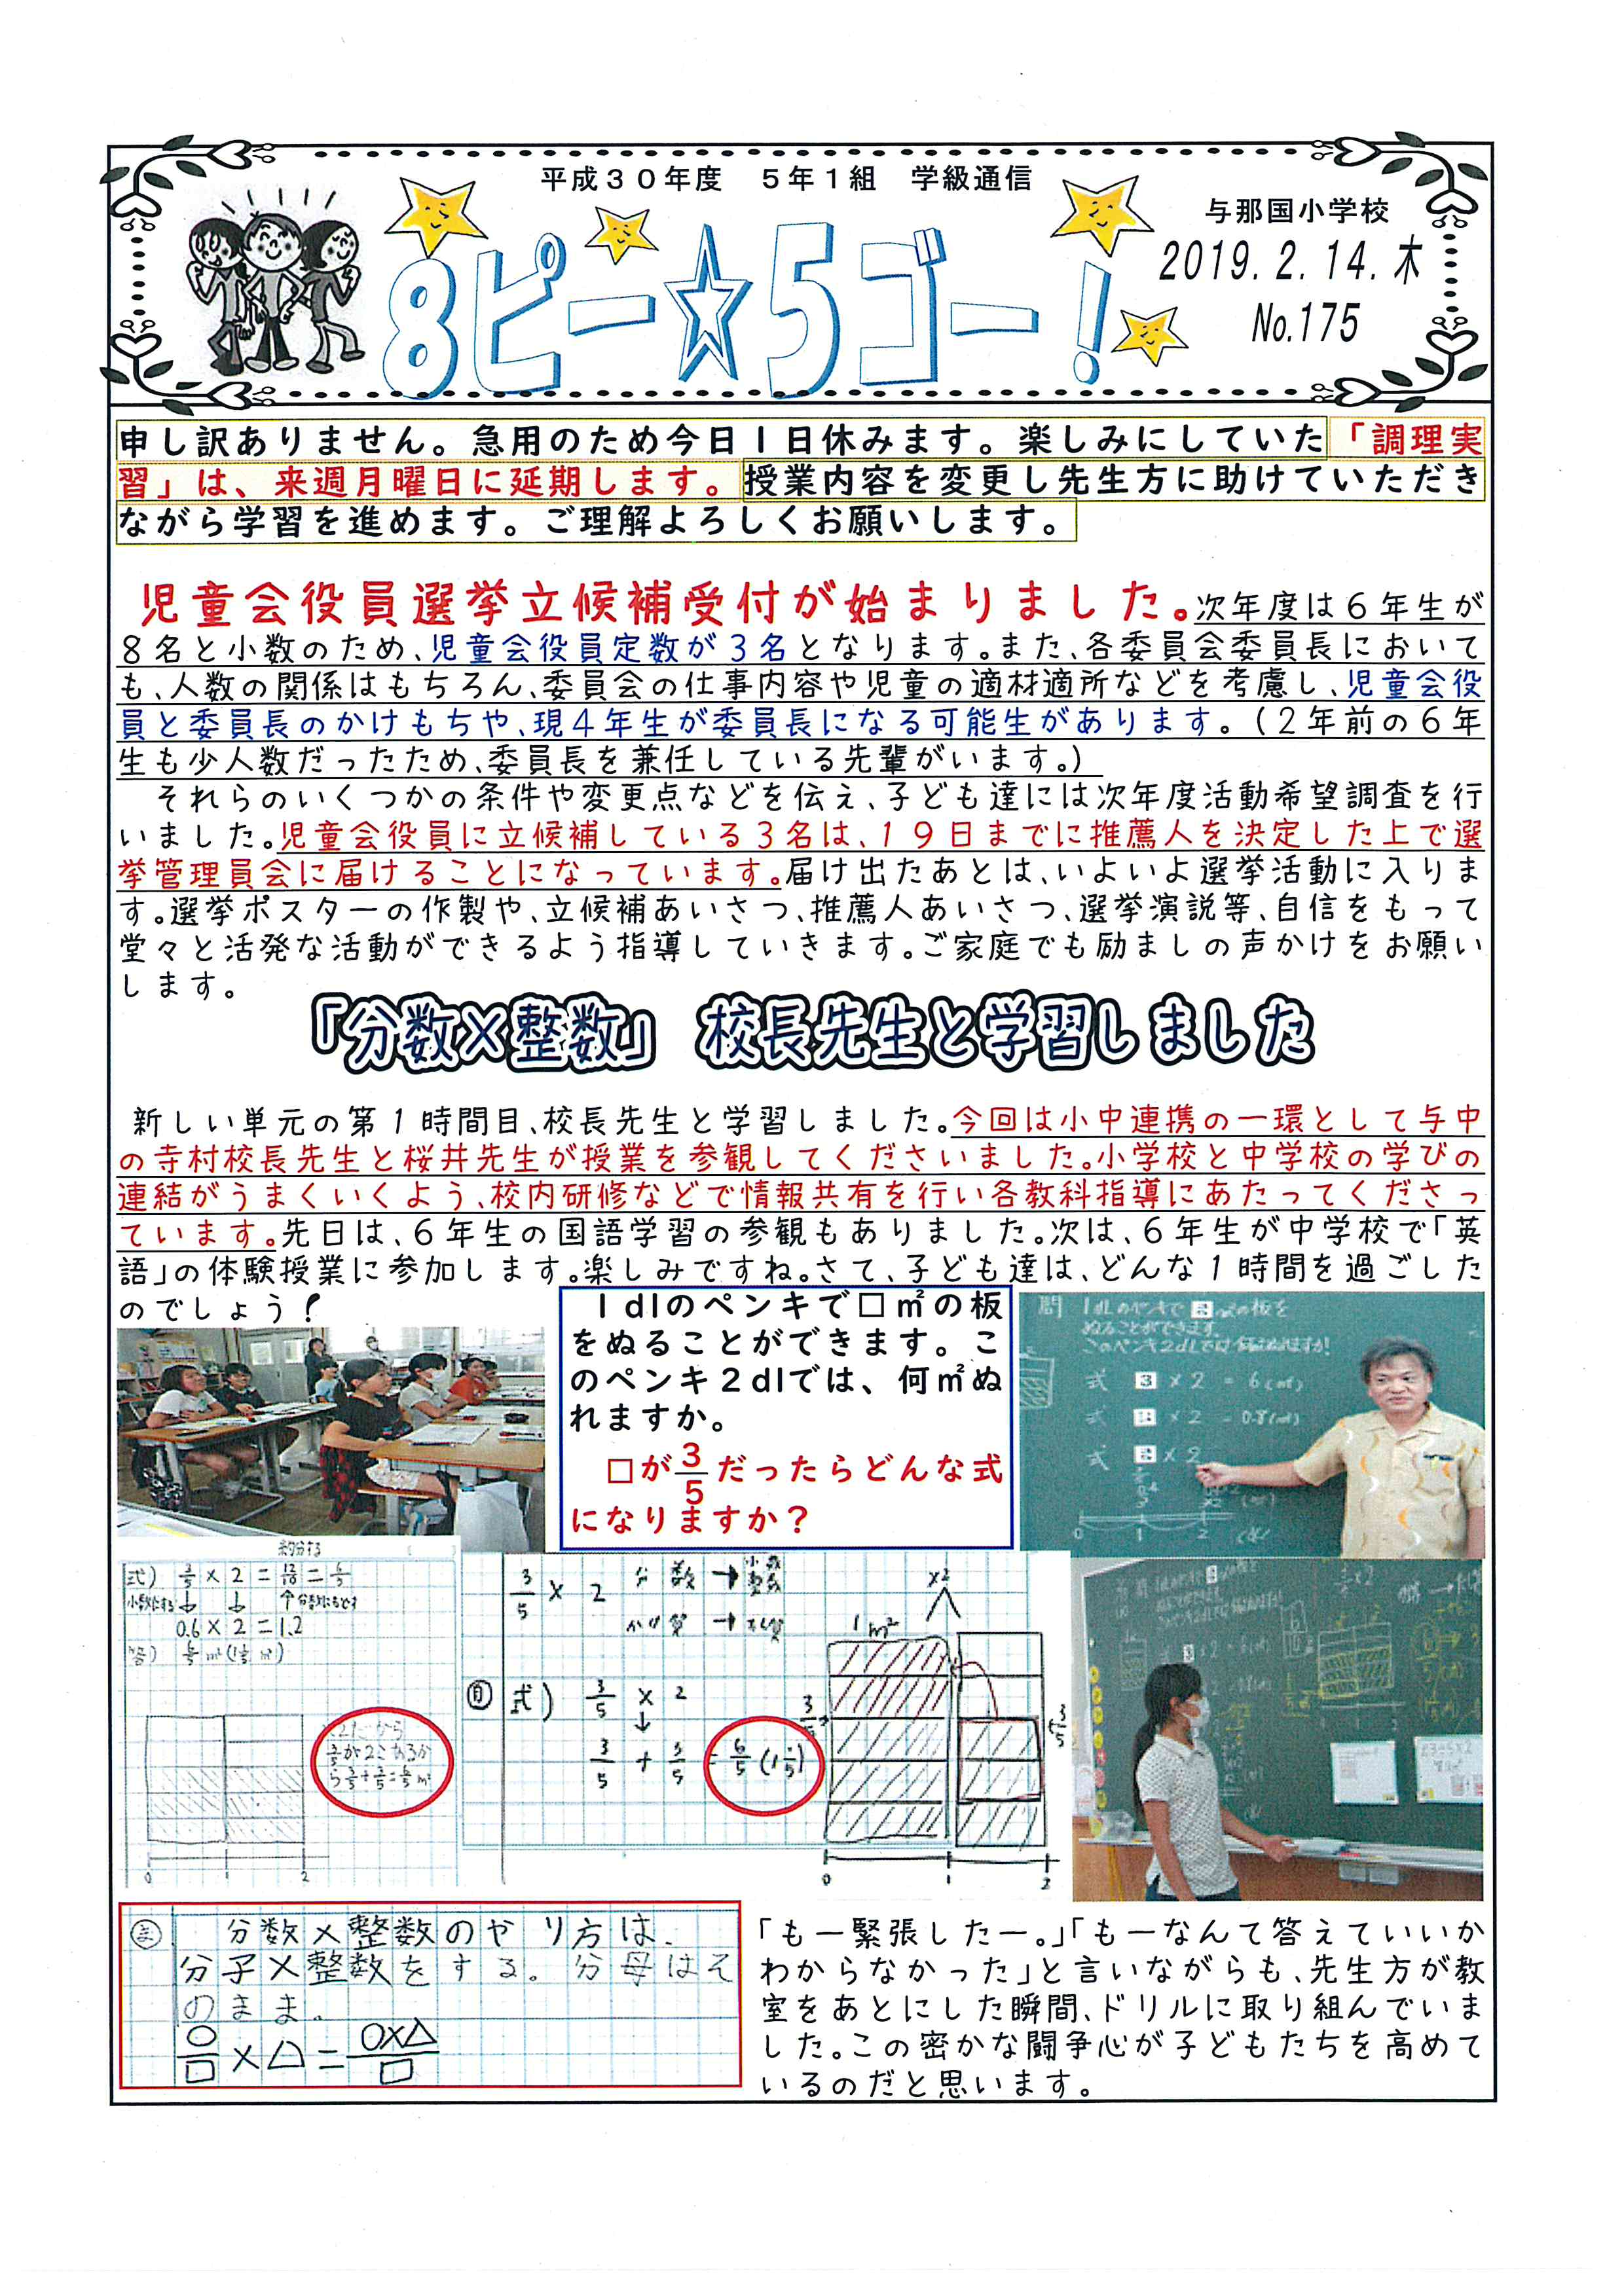 平成３０年度　５年１組　学級通信
与那国小学校
8ピー☆5ゴー！
2019.2.14.木
No.175
申し訳ありません。急用のため今日１日休みます。楽しみにしていた「調理実
習」は、来週月曜日に延期します。授業内容を変更し先生方に助けていただき
ながら学習を進めます。ご理解よろしくお願いします。
児童会役員選挙立候補受付が始まりました。次年度は６年生が
８名と小数のため、児童会役員定数が３名となります。また、各委員会委員長において
も、人数の関係はもちろん、委員会の仕事内容や児童の適材適所などを考慮し、児童会役
員と委員長のかけもちや、現４年生が委員長になる可能生があります。（２年前の６年
生も少人数だったため、委員長を兼任している先輩がいます。）
それらのいくつかの条件や変更点などを伝え、子ども達には次年度活動希望調査を行
いました。児童会役員に立候補している３名は、１９日までに推薦人を決定した上で選
挙管理員会に届けることになっています。届け出たあとは、いよいよ選挙活動に入りま
す。選挙ポスターの作製や、立候補あいさつ、推薦人あいさつ、選挙演説等、自信をもって
堂々と活発な活動ができるよう指導していきます。ご家庭でも励ましの声かけをお願い
します。
「分数×整数」　校長先生と学習しました
新しい単元の第１時間目、校長先生と学習しました。今回は小中連携の一環として与中
の寺村校長先生と桜井先生が授業を参観してくださいました。小学校と中学校の学びの
連結がうまくいくよう、校内研修などで情報共有を行い各教科指導にあたってくださっ
ています。先日は、６年生の国語学習の参観もありました。次は、６年生が中学校で「英
語」の体験授業に参加します。楽しみですね。さて、子ども達は、どんな１時間を過ごした
のでしょう！
１dlのペンキで□㎡の板
をぬることができます。こ
のペンキ２dlでは、何㎡ぬ
れますか。
□が3/5だったらどんな式
になりますか？
問 1dLのペンキで 3 ㎡の板を
ぬることができます。
このペンキ2dlでは何㎡ぬれますか!
式 3 × 2 = 6(㎡)
式 × 2 = 0.8(㎡)
式 × 2
0 1 2
約分する
式) 3/5 × 2 = 12/10 = 6/5
小数にする↓ ↓ ↑分数にもどす
0.6 × 2 = 1.2
答) 6/5 m² (1 1/5 m²)
3/5が2こあるか
ら3/5+3/5=6/5 m²
0 1 2
3/5 × 2 分数→小数 整数
かけ算→たし算
自 式) 3/5 × 2
↓
3/5 + 3/5 = 6/5 (1 1/5)
×2
1m²
3/5
3/5
0 1 2
ま 分数×整数のやり方は、
分子×整数をする。分母はそ
のまま。
○/□ × △ = ○×△/□
「もー緊張したー。」「もーなんて答えていいか
わからなかった」と言いながらも、先生方が教
室をあとにした瞬間、ドリルに取り組んでいま
した。この密かな闘争心が子どもたちを高めて
いるのだと思います。